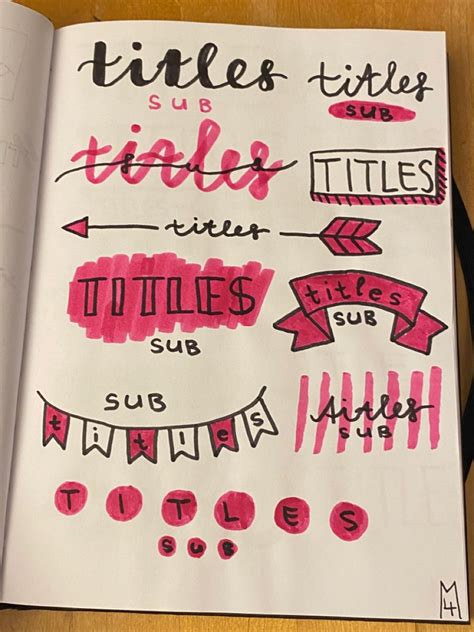 titles
SUB
titles
SUB
titles
sub
TITLES
titles
TITLES
SUB
titles
SUB
SUB
titles
titles
SUB
TITLES
SUB
M4